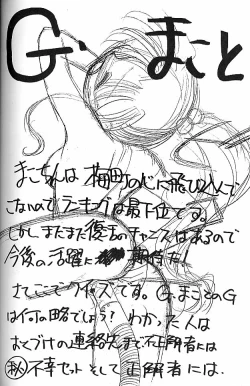 G. まこと
まこちんは 梅田町の心に飛び込んで
さないので ランキングは最下位です。
しかし、まだまだ復活のチャンスはあるので
今後の活躍に 期待だ!
さてここでクイズです。G.まことのG
は何の略でしょう? わかった人は
おくづけの連絡先まで 不正解者には
㊙不幸セット そして正解者には.